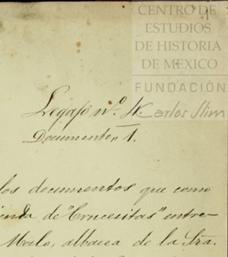 CENTRO DE
ESTUDIOS
DE HISTORIA
DE MÉXICO
FUNDACIÓN
Carlos Slim
Legajo nº
Documento, 1.
los documentos que como
de "Crucesitas" entre-
albacea de la Sra.